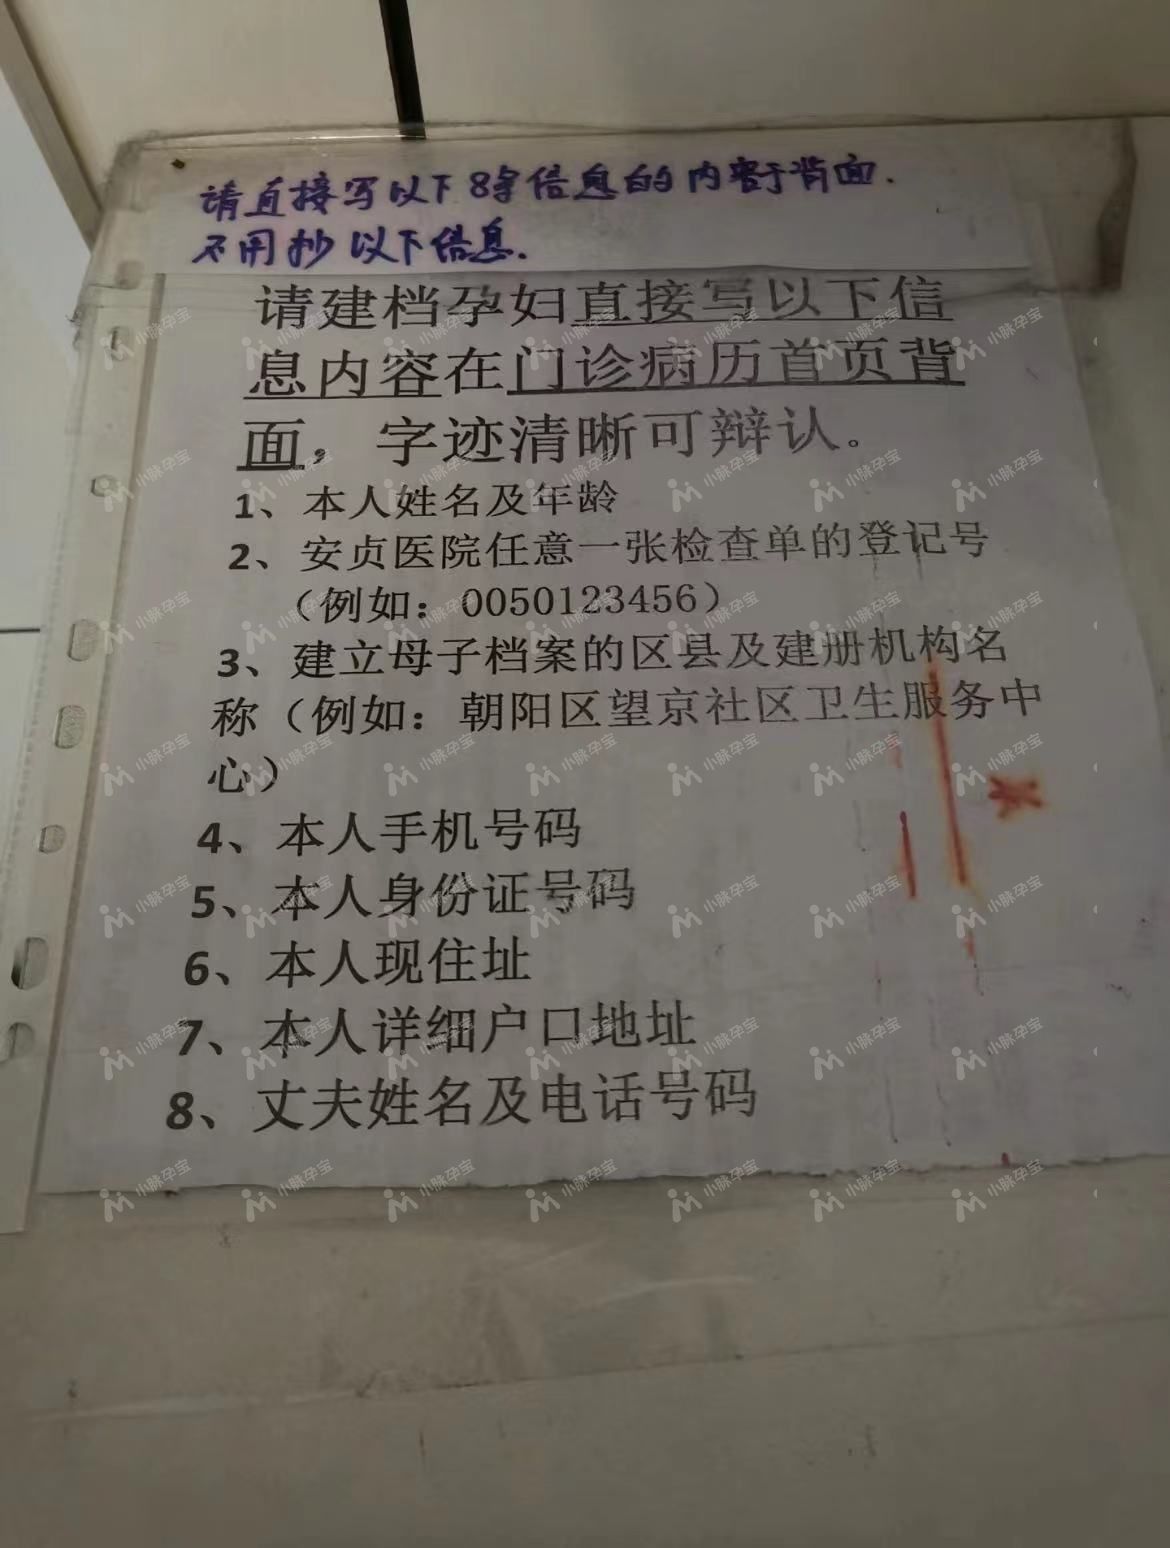 请直接写以下8条信息的内容于背面.
不用抄以下信息.
请建档孕妇直接写以下信
息内容在门诊病历首页背
面，字迹清晰可辩认。
1、本人姓名及年龄
2、安贞医院任意一张检查单的登记号
（例如：0050123456）
3、建立母子档案的区县及建册机构名
称（例如：朝阳区望京社区卫生服务中
心）
4、本人手机号码
5、本人身份证号码
6、本人现住址
7、本人详细户口地址
8、丈夫姓名及电话号码
小脉孕宝